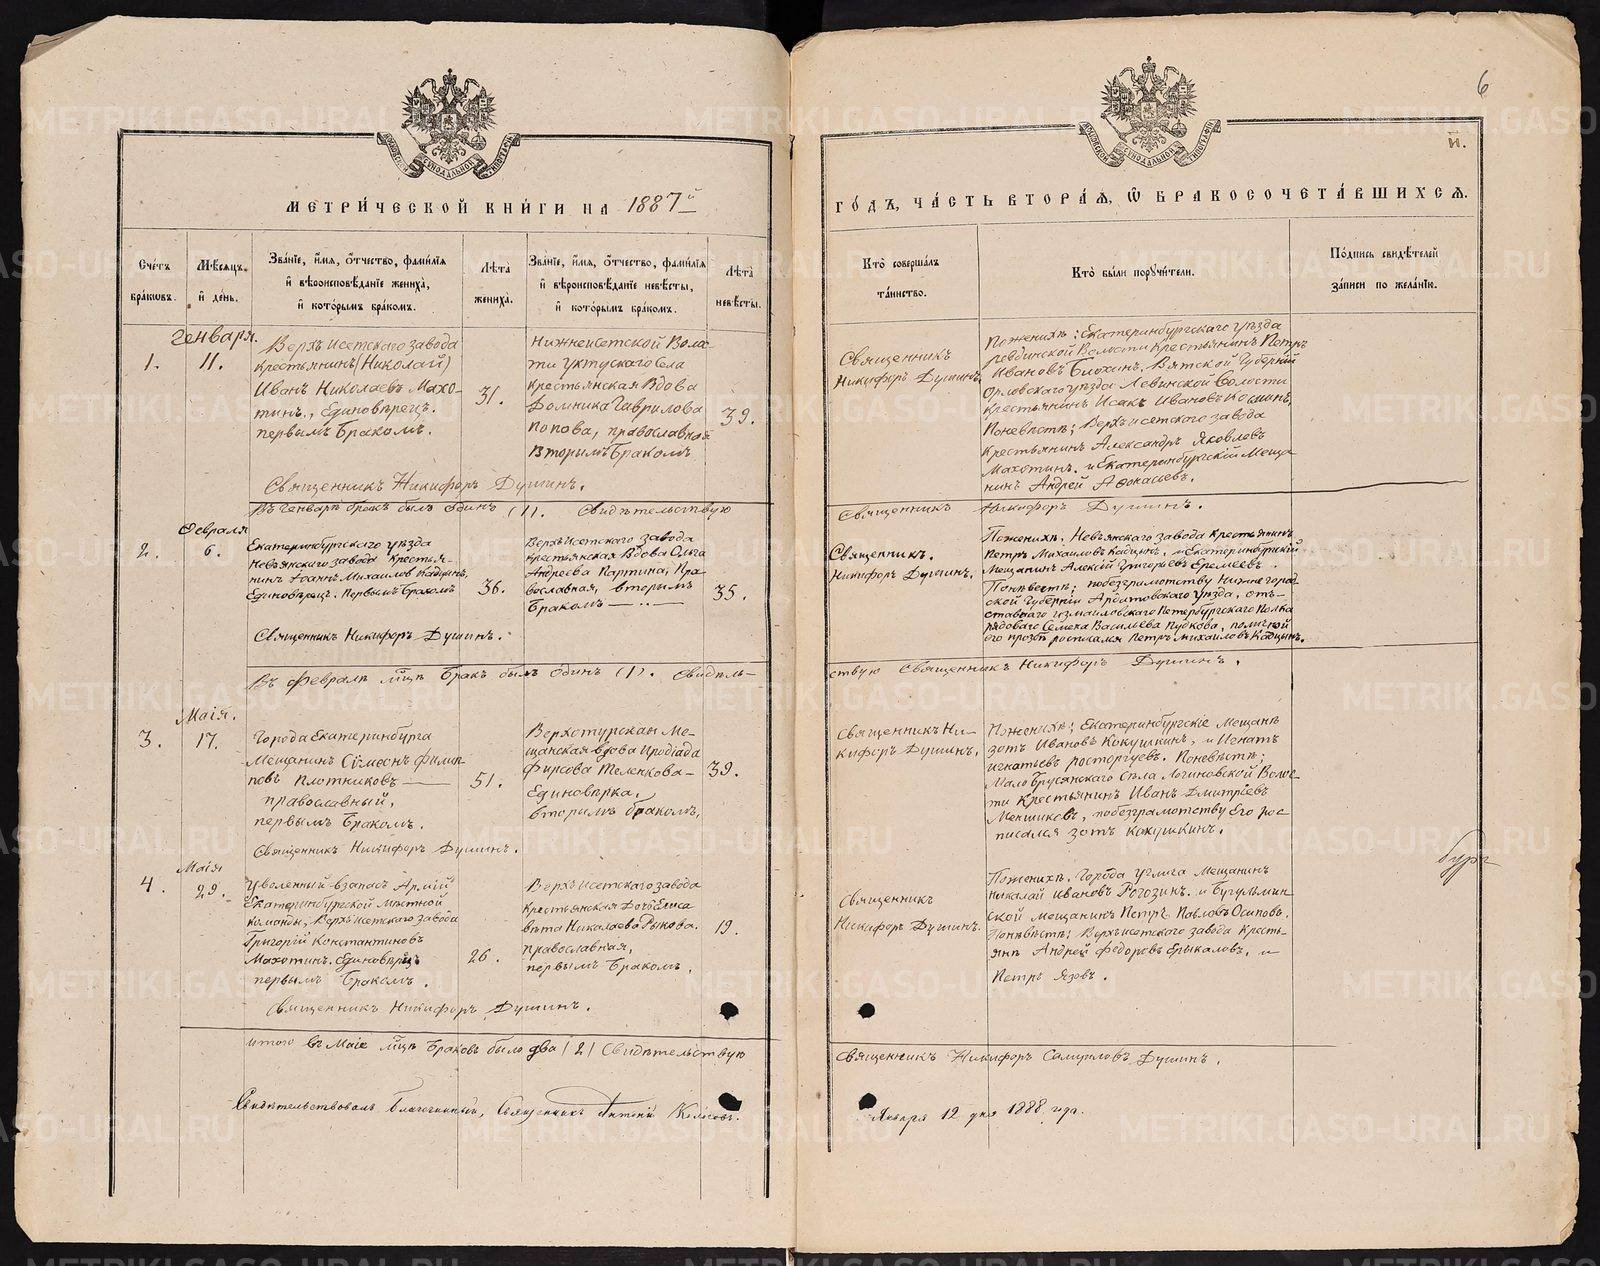 6
и҃.
МОСКОВСКОЙ СѴНОДАЛЬНОЙ ТИПОГРАФІИ
МОСКОВСКОЙ СѴНОДАЛЬНОЙ ТИПОГРАФІИ
МЕТРИ́ЧЕСКОЙ КНИ́ГИ НА 1887й
ГО́ДЪ, ЧА́СТЬ ВТОРА́Ѧ, Ѡ҆ БРАКОСОЧЕТА́ВШИХСѦ.
Сче́тъ
бра́кѡвъ.
Мѣ́сѧцъ
и҆ де́нь.
Зва́нїе, и҆́мѧ, ѻ҆́тчество, фами́лїѧ
и҆ вѣроисповѣ́данїе жениха̀,
и҆ кото́рымъ бра́комъ.
Лѣ́та̀
жениха̀.
Зва́нїе, и҆́мѧ, ѻ҆́тчество, фами́лїѧ
и҆ вѣроисповѣ́данїе невѣ́сты,
и҆ кото́рымъ бра́комъ.
Лѣ́та̀
невѣ́сты.
Кто̀ соверша́лъ
та́инство.
Кто̀ бы́ли порꙋчи́тели.
По́дпись свидѣ́телей
за́писи по жела́нїю.
Генваря.
1.
11.
Верхъ Исетскаго завода
крестьянинъ (Николай)
Иванъ Николаевъ Махо-
тинъ, Единовѣрецъ.
первымъ Бракомъ.
31.
Нижнеисетской Волос
ти Уктускаго Села
крестьянская Вдова
Домника Гаврилова
Попова, православной
Вторымъ Бракомъ
39.
Священникъ
Никифоръ Душинъ.
Поженихѣ: Екатеринбургскаго уѣзда
ревдинской Волости Крестьянинъ Петръ
Ивановъ Блохинъ. Вятской Губерніи
Орловскаго уѣзда Левинской Волости
крестьянинъ Исакъ Ивановъ
Поневѣстѣ; Верхъ исетскаго завода
крестьянинъ Александръ Яковлевъ
Махотинъ. и Екатеринбургскій Меща
нинъ Андрей Афонасьевъ.
Священникъ Никифоръ Душинъ.
Въ Генварѣ бракъ былъ одинъ (1). Свидѣтельствую
Священникъ Никифоръ Душинъ.
Февраля
2.
6.
Екатеринбургскаго уѣзда
Невьянскаго завода Крестья-
нинъ Іоаннъ Михаиловъ Кадцинъ,
Единовѣрецъ. Первымъ Бракомъ
36.
Верхъ исетскаго завода
крестьянская Вдова Ольга
Андреева Картина, Пра
вославная, вторымъ
Бракомъ
35.
Священникъ.
Никифоръ Душинъ.
Поженихѣ. Невьянскаго завода Крестьянинъ
Петръ Михаиловъ Кадцинъ, и Екатеринбургскій
Мещанинъ Алексій Григорьевъ Еремеевъ.
Поневѣстѣ; побезграмотству Нижнегород-
ской Губерніи Ардатовскаго уѣзда, от-
ставнаго измаиловскаго Петербургскаго Полка
рядоваго Семена Васильева Пудкова, поличной
его прозбѣ росписался Петръ Михаиловъ Кадцинъ.
Священникъ Никифоръ Душинъ.
Въ Февралѣ мцѣ Бракъ былъ один (1). Свидѣтель-
ствую Священникъ Никифоръ Душинъ.
Маія.
3.
17.
Города Екатеринбурга
Мещанинъ Сѵмеонъ Филип
повъ Плотниковъ
православный,
первымъ Бракомъ.
51.
Верхотурская Ме-
щанская вдова Иродіада
Фирсова Теленкова
Единовѣрка,
вторымъ бракомъ,
39.
Священникъ Ни-
кифоръ Душинъ.
Поженихѣ; Екатеринбургскіе Мещане
Зотъ Ивановъ Кокушкинъ, и Игнатъ
Игнатьевъ Расторгуевъ. Поневѣстѣ;
Мало Брусянскаго Села Логиновской Волос-
ти Крестьянинъ Иванъ Дмитріевъ
Меншиковъ, побезграмотству Его рос
писался Зотъ Кокушкинъ.
Священникъ Никифоръ Душинъ.
Маія
4.
29.
Уволенный взапасъ Арміи
Екатеринбургской Мѣстной
команды, Верхъ исетскаго завода
Григорій Константиновъ
Махотинъ. единовѣрецъ
первымъ Бракомъ.
26.
Верхъ исетскаго завода
крестьянская Дочь Елиса
вѣта Николаева Рыкова.
православная,
первымъ Бракомъ.
19.
Священникъ
Никифоръ Душинъ.
Поженихѣ. Города углича Мещанинъ
Николай Ивановъ Рогозинъ. и Бугульмин
ской мещанинъ Петръ Павловъ Осиповъ.
Поневѣстѣ; Верхъ исетскаго завода Кресть-
яне Андрей Федоровъ Ерыкаловъ, и
Петръ Язовъ.
бург
Священникъ Никифоръ Душинъ.
итого въ Маіе мцѣ Браковъ было два (2) Свидѣтельствую
священникъ Никифоръ Самуиловъ Душинъ.
Свидѣтельствовалъ Благочинный, Священникъ Антоній
Января 12 дня 1888 года.
METRIKI.GASO-URAL.RU